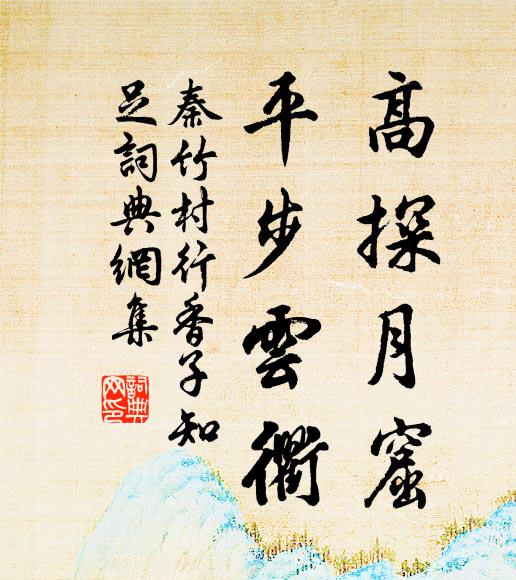 高探月窟
平步雲衢
秦竹村行香子知
足詞典網集
詞典
网印